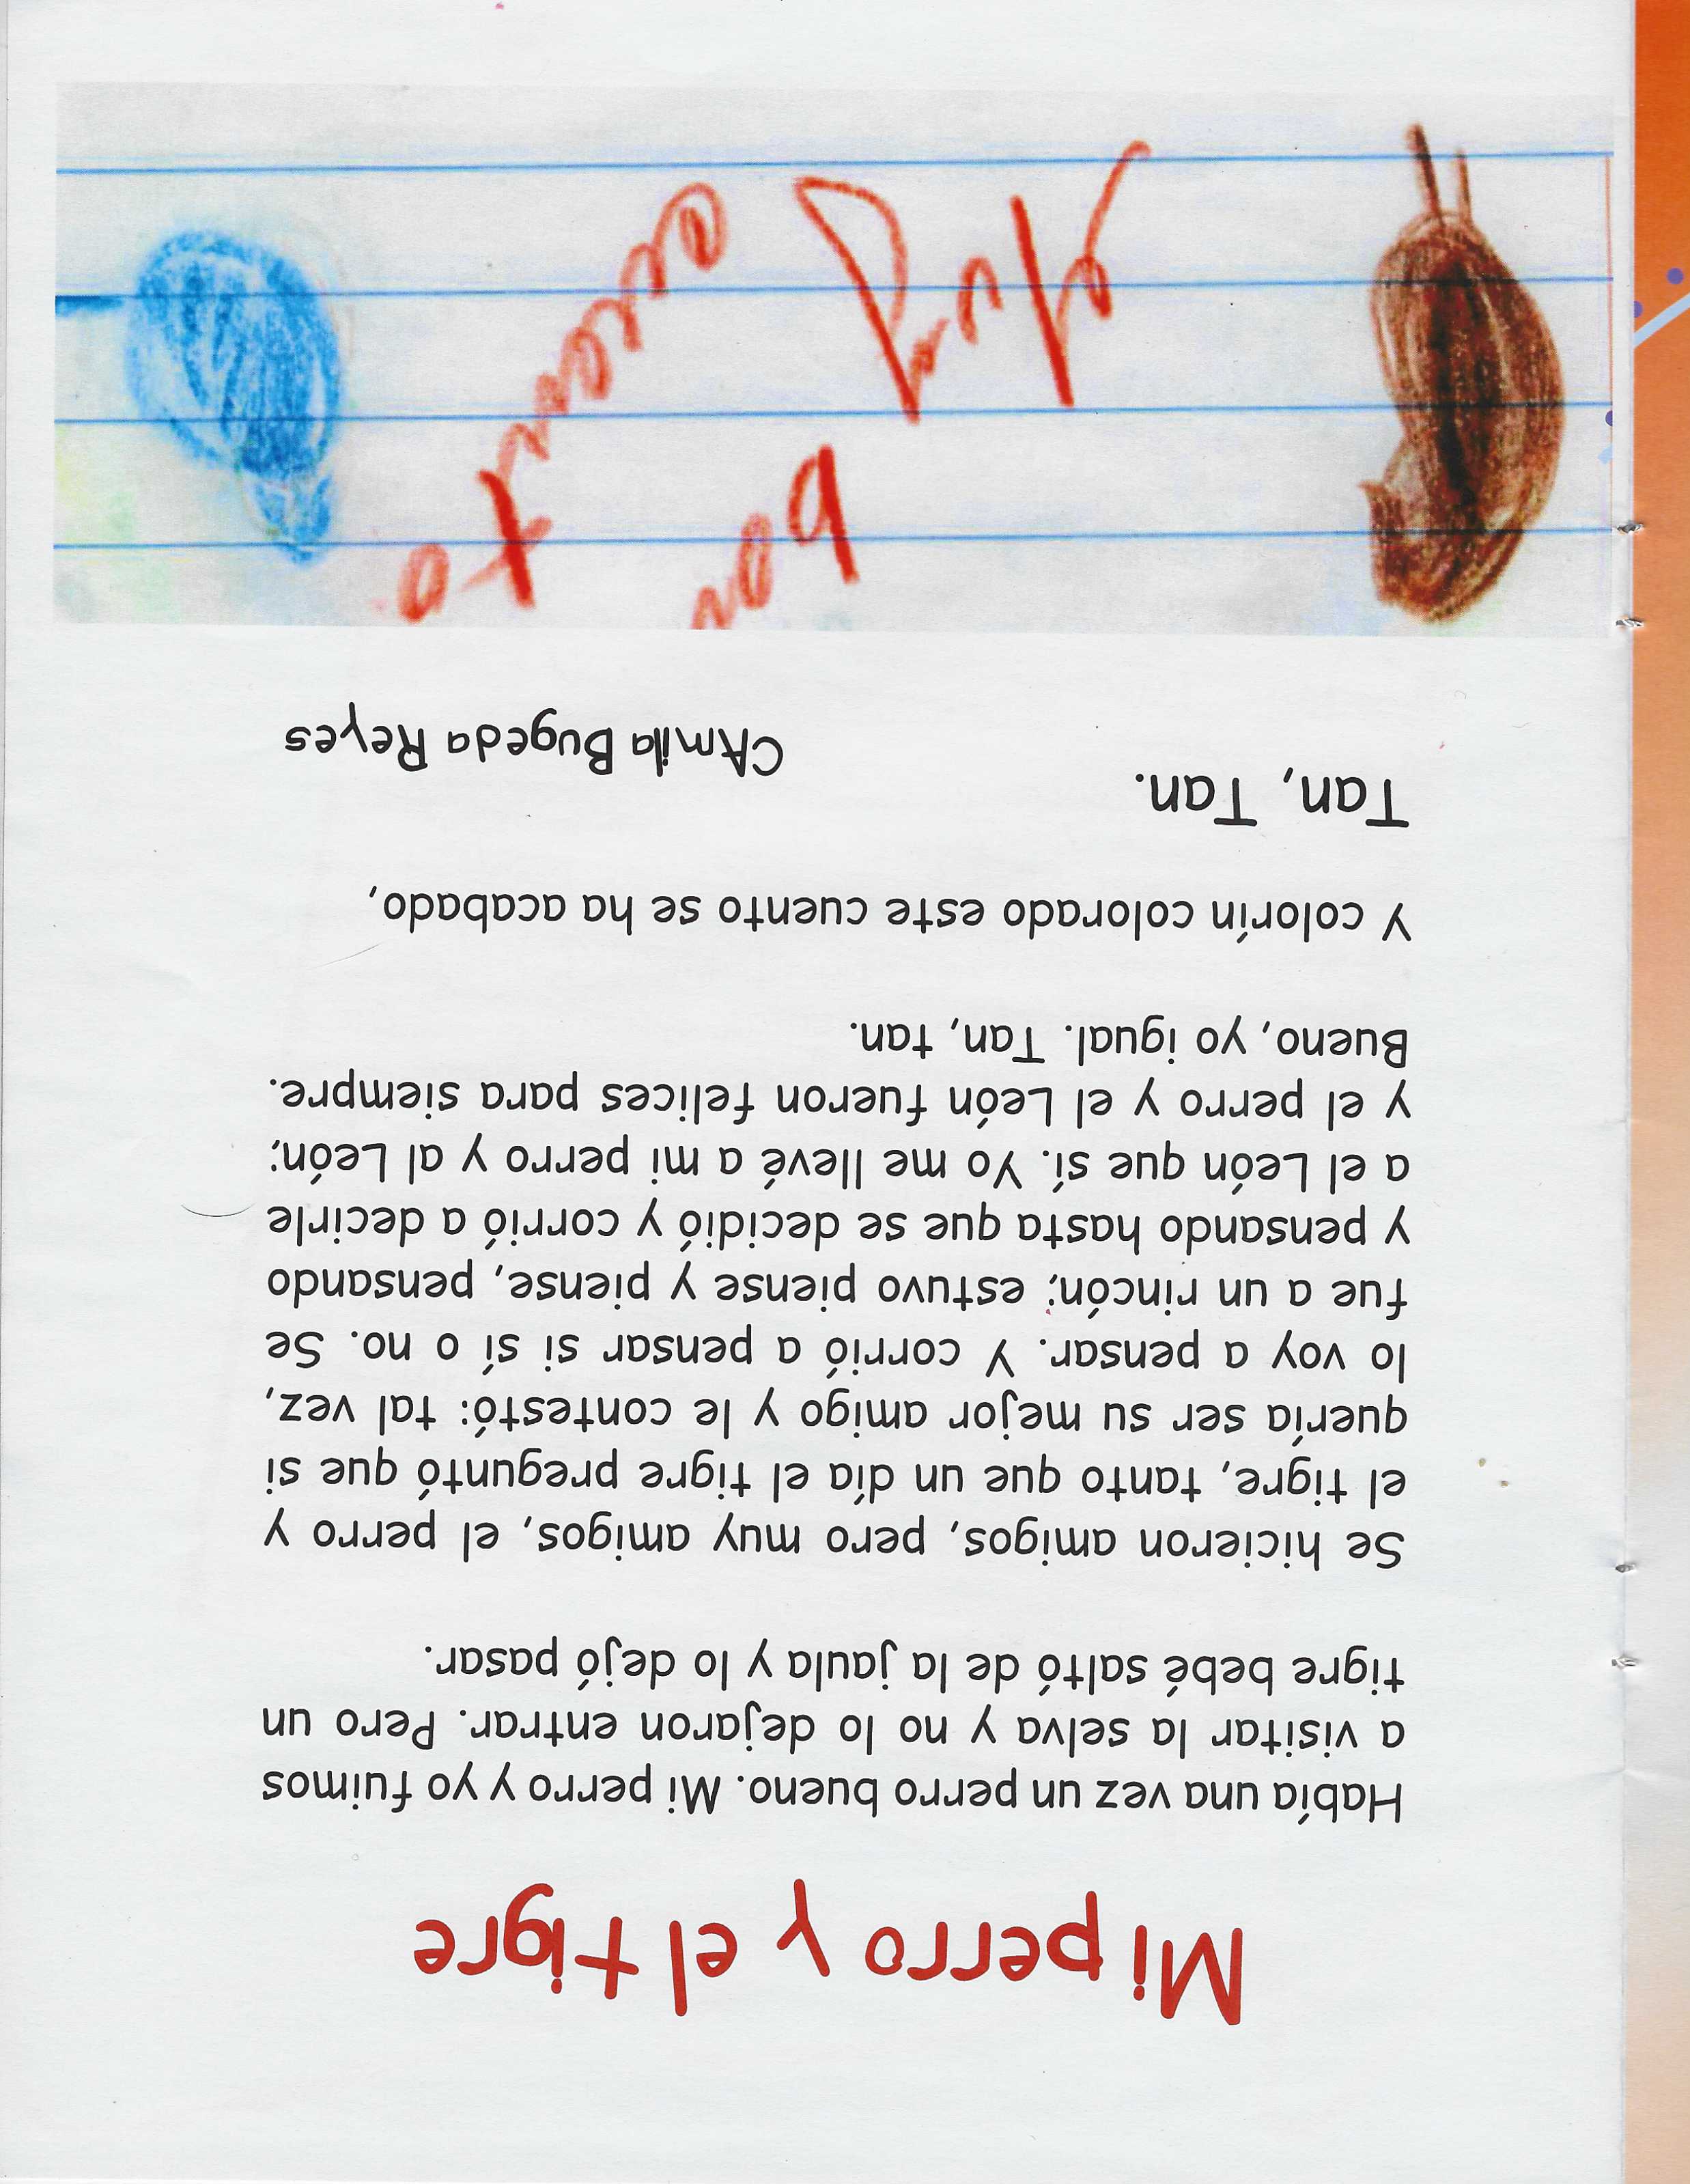 Mi perro y el tigre
Había una vez un perro bueno. Mi perro y yo fuimos
a visitar la selva y no lo dejaron entrar. Pero un
tigre bebé saltó de la jaula y lo dejó pasar.
Se hicieron amigos, pero muy amigos, el perro y
el tigre, tanto que un día el tigre preguntó que si
quería ser su mejor amigo y le contestó: tal vez,
lo voy a pensar. Y corrió a pensar si sí o no. Se
fue a un rincón; estuvo piense y piense, pensando
y pensando hasta que se decidió y corrió a decirle
a el León que sí. Yo me llevé a mi perro y al León;
y el perro y el León fueron felices para siempre.
Bueno, yo igual. Tan, tan.
Y colorín colorado este cuento se ha acabado,
Tan, Tan.
CAmila Bugeda Reyes